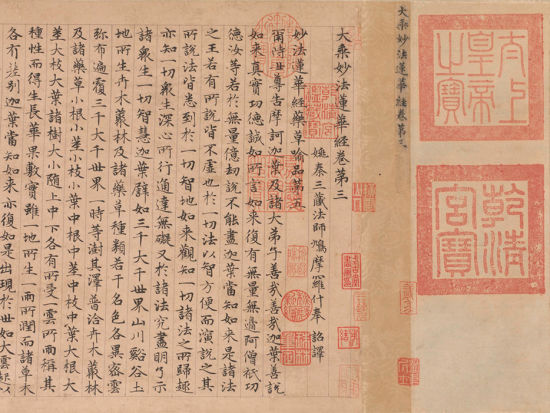 太上皇帝之寶
乾清宮寶
大乘妙法蓮華經卷第三
大乘妙法蓮華經卷第三
姚秦三藏法師鳩摩羅什奉 詔譯
妙法蓮華經藥草喻品第五
爾時世尊告摩訶迦葉及諸大弟子善哉善哉迦葉善說
如來真實功德誠如所言如來復有無量無邊阿僧祇功
德汝等若於無量億劫說不能盡迦葉當知如來是諸法
之王若有所說皆不虛也於一切法以智方便而演說之其
所說法皆悉到於一切智地如來觀知一切諸法之所歸趣
亦知一切眾生深心所行通達無礙又於諸法究盡明了示
諸眾生一切智慧迦葉譬如三千大千世界山川谿谷土
地所生卉木叢林及諸藥草種類若干名色各異密雲
彌布遍覆三千大千世界一時等澍其澤普洽卉木叢林
及諸藥草小根小莖小枝小葉中根中莖中枝中葉大根大
莖大枝大葉諸樹大小隨上中下各有所受一雲所雨稱其
種性而得生長華果敷實雖一地所生一雨所潤而諸草木
各有差別迦葉當知如來亦復如是出現於世如大雲起以